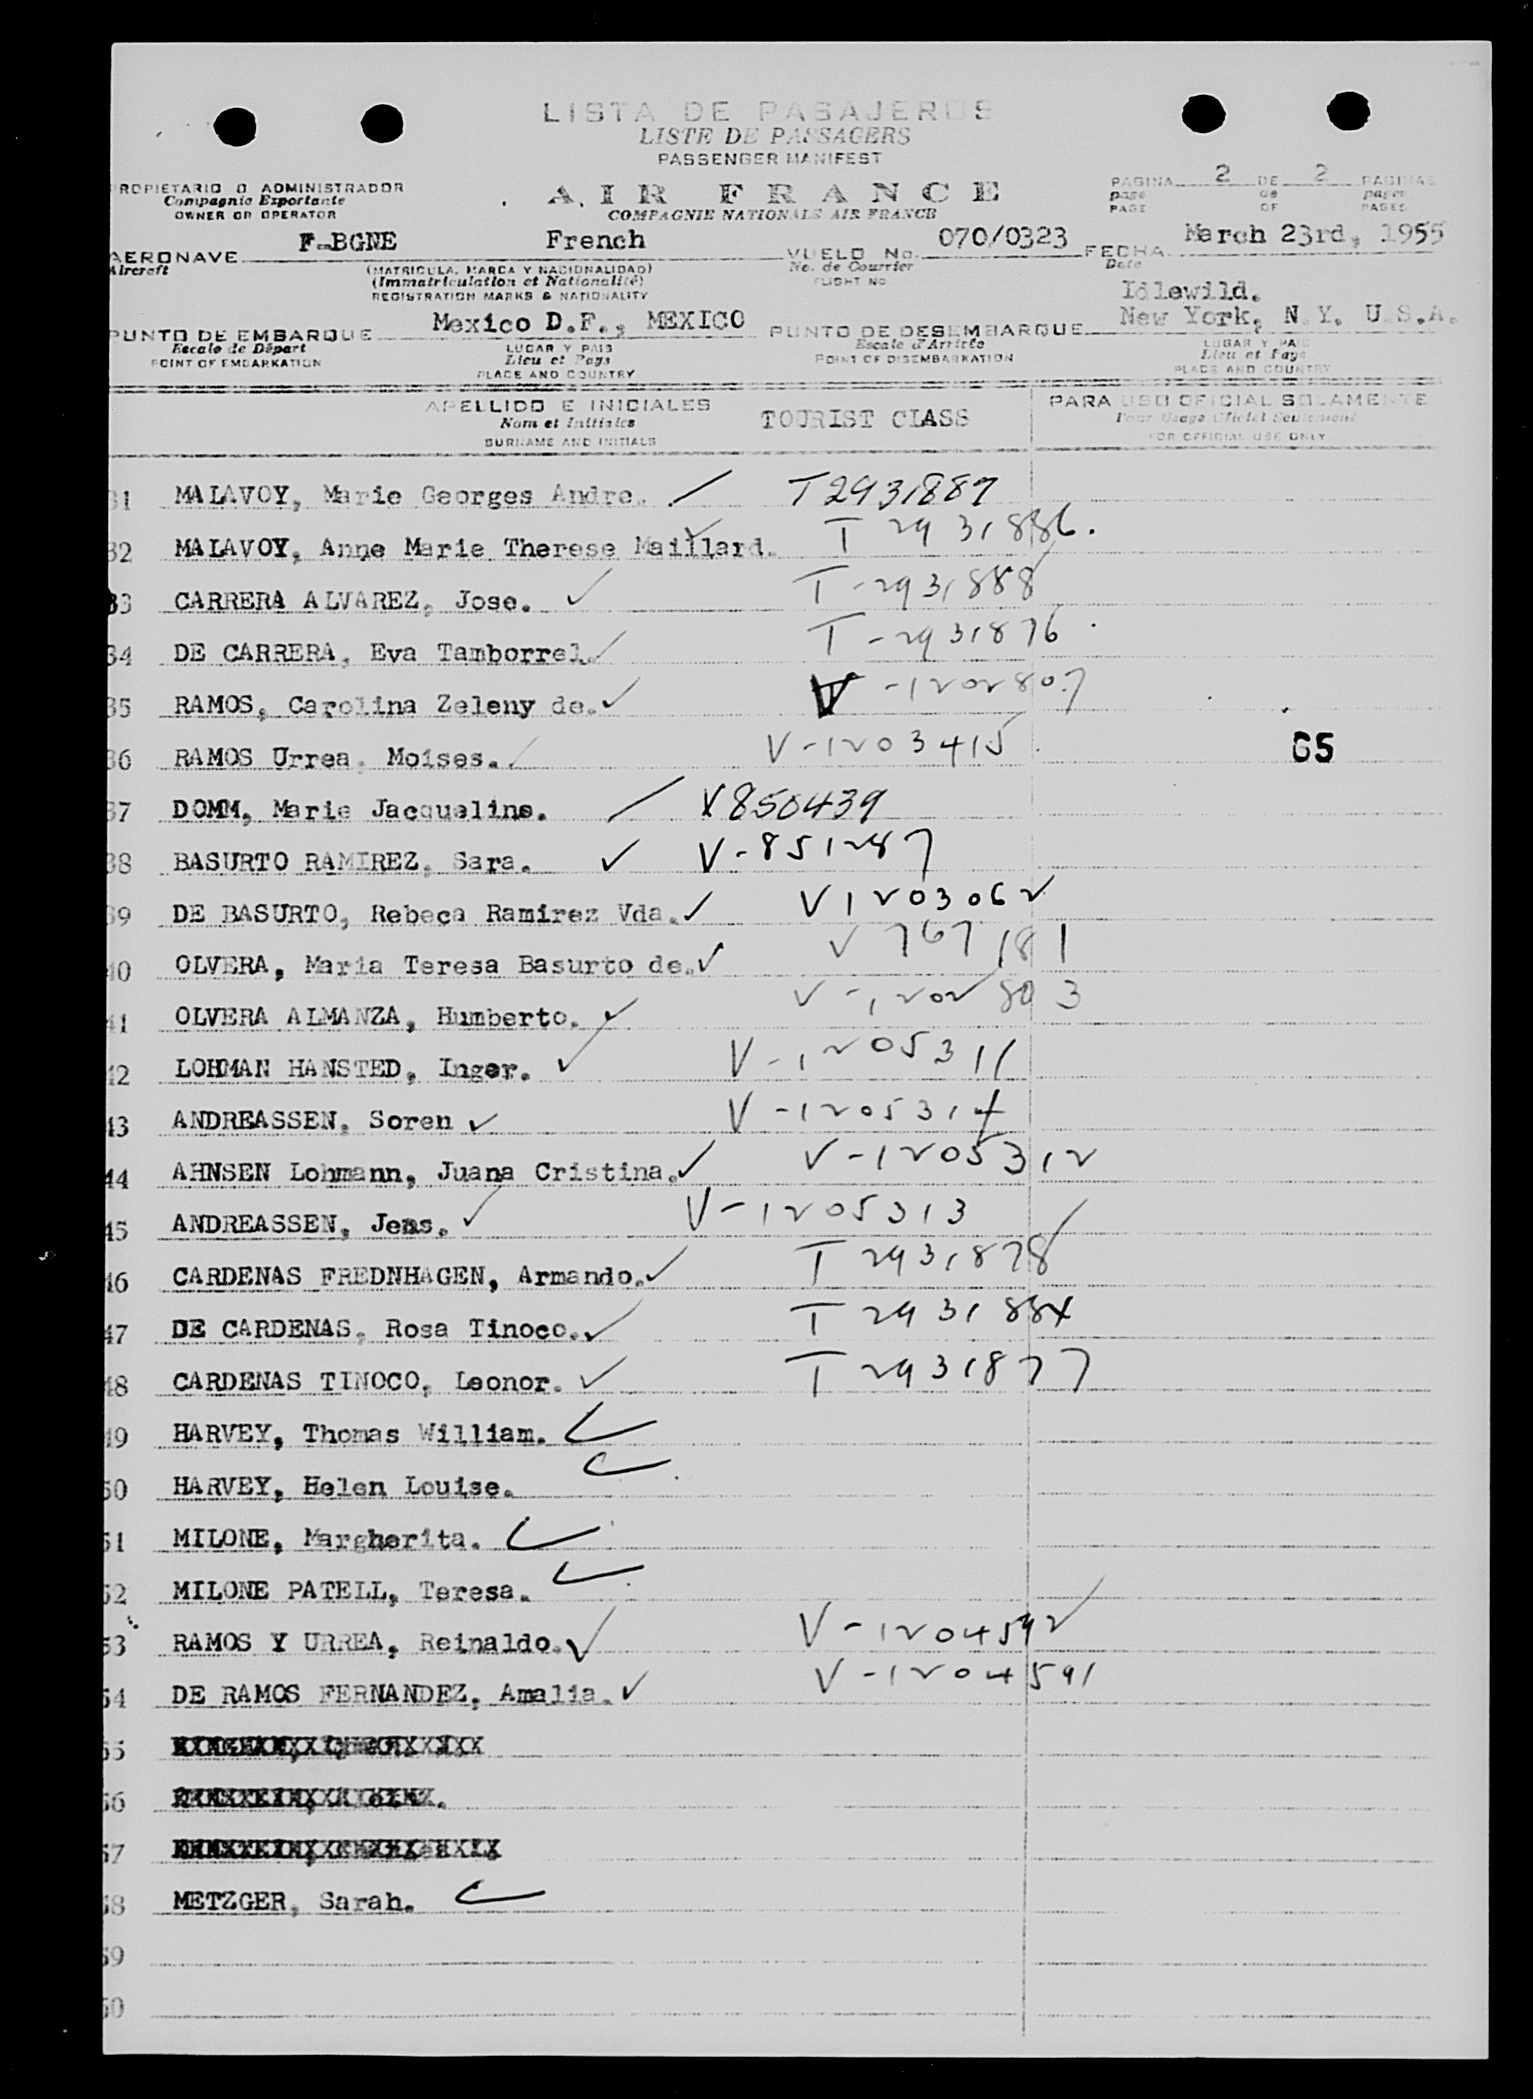 LISTA DE PASAJEROS
LISTE DE PASSAGERS
PASSENGER MANIFEST
PROPIETARIO O ADMINISTRADOR
Compagnie Exportante
OWNER OR OPERATOR
AIR FRANCE
COMPAGNIE NATIONALE AIR FRANCE
PAGINA 2 DE 2 PAGINAS
page de pages
PAGE OF PAGES
AERONAVE F-BGNE French VUELO No. 070/0323 FECHA March 23rd, 1955
Aircraft (MATRICULA, MARCA Y NACIONALIDAD) No. de Courrier Date
(Immatriculation et Nationalité) FLIGHT NO
REGISTRATION MARKS & NATIONALITY
Idlewild.
PUNTO DE EMBARQUE Mexico D.F., MEXICO PUNTO DE DESEMBARQUE New York, N.Y. U.S.A.
Escale de Départ LUGAR Y PAIS Escale d'Arrivée LUGAR Y PAIS
POINT OF EMBARKATION Lieu et Pays POINT OF DISEMBARKATION Lieu et Pays
PLACE AND COUNTRY PLACE AND COUNTRY
APELLIDO E INICIALES TOURIST CLASS PARA USO OFICIAL SOLAMENTE
Nom et Initiales Pour Usage Officiel Seulement
SURNAME AND INITIALS FOR OFFICIAL USE ONLY
31 MALAVOY, Marie Georges Andre. T2931887
32 MALAVOY, Anne Marie Therese Maillard. T 2931886.
33 CARRERA ALVAREZ, Jose. T-2931888
34 DE CARRERA, Eva Tamborrel. T-2931876
35 RAMOS, Carolina Zeleny de. V-1202807
36 RAMOS Urrea, Moises. V-1203415 65
37 DOMM, Marie Jacqueline. V850439
38 BASURTO RAMIREZ, Sara. V-851287
39 DE BASURTO, Rebeca Ramirez Vda. V1203062
40 OLVERA, Maria Teresa Basurto de. V 767181
41 OLVERA ALMANZA, Humberto. V-1202803
42 LOHMAN HANSTED, Inger. V-1205311
43 ANDREASSEN, Soren V-1205314
44 AHNSEN Lohmann, Juana Cristina. V-1205312
45 ANDREASSEN, Jens. V-1205313
46 CARDENAS FREDNHAGEN, Armando. T 2931878
47 DE CARDENAS, Rosa Tinoco. T 2931884
48 CARDENAS TINOCO, Leonor. T 2931877
49 HARVEY, Thomas William.
50 HARVEY, Helen Louise.
51 MILONE, Margherita.
52 MILONE PATELL, Teresa.
53 RAMOS Y URREA, Reinaldo. V-1204592
54 DE RAMOS FERNANDEZ, Amalia. V-1204591
55
56
57
58 METZGER, Sarah.
59
60